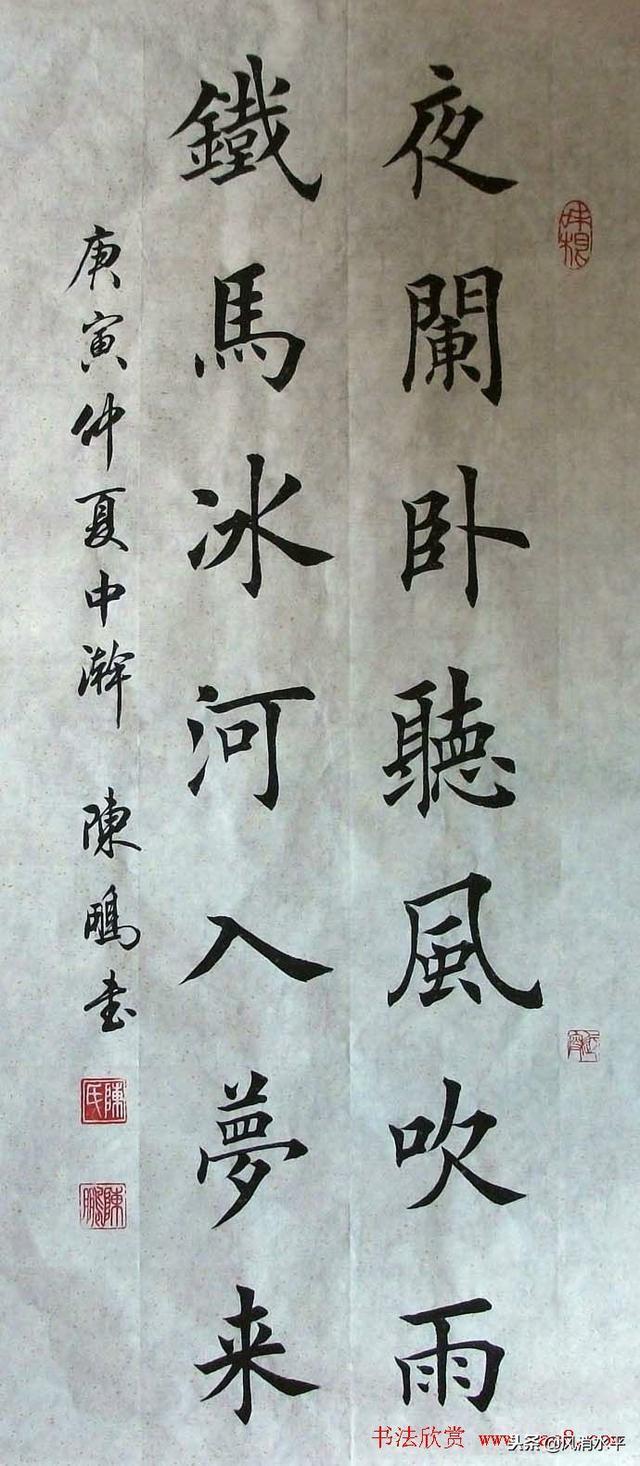 夜闌卧聽風吹雨
鐵馬冰河入夢来
庚寅仲夏中澣 陳鵬書
陳氏
陳鵬
书法欣赏
头条@风消水平